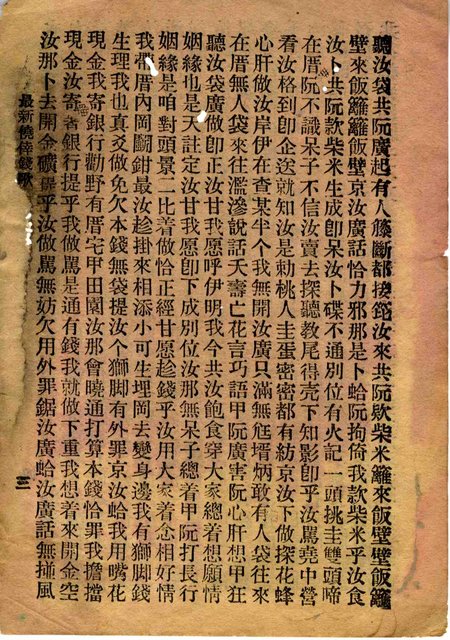 聽汝袋共阮廣起有人藤斷都接筢汝來共阮欵柴米籬來飯壁壁飯籬
壁來飯籬籬飯壁京汝廣話恰力邪那是卜蛤阮拘倚我款柴米乎汝食
汝卜共阮款柴米生成卽呆汝卜碟不通別位有火記一頭挑圭雙頭啼
在厝阮不識呆子不信汝賣去探聽教尾得壳下知影卽乎汝罵堯中營
看汝格到卽金送就知汝是勅桃人圭蛋密密都有紡京汝下做探花蜂
心肝做汝岸伊在查某半个我無開汝廣只滿無尪壻炳敢有人袋往來
在厝無人袋來往濫滲說話夭壽亡花言巧語甲阮廣害阮心肝想甲狂
聽汝袋廣做卽正汝甘我愿呼伊明我今共汝飽食穿大家總着想願情
姻緣也是天註定汝甘我愿卽下成別位汝那無呆子總着甲阮打長行
姻緣是咱對頭景二比着做恰正經甘愿趁錢乎汝用大家着念相好情
我帶厝內岡鬬鉗最汝趁掛來相添小可生埋岡去變身邊我有獅脚錢
生理我也真爻做免欠本錢無袋提汝个獅脚有外罪京汝蛤我用嘴花
現金我寄銀行勸野有厝宅甲田園汝那會曉通打算本錢恰罪我擔擋
現金汝寄銀行提乎我做罵是通有錢我就做下重我想着來開金空
汝那卜去開金礦提乎汝做罵無妨欠用外罪鋸汝廣蛤汝廣話無摓風
最新僥倖錢歌
三